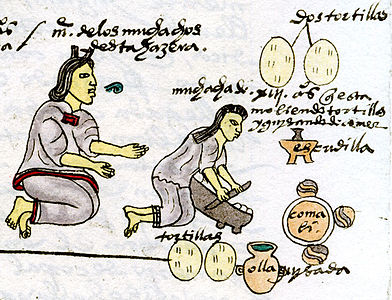 / m. de los muchachos
desta hazera.
dos tortillas
muchacha de . xiij. años q̃ esta
moliendo tortillas
y guisando de comer
escudilla
comali.
tortillas
olla